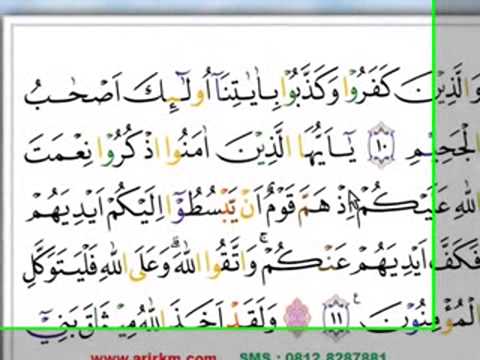 وَالَّذِيْنَ كَفَرُوْا وَكَذَّبُوْا بِاٰيٰتِنَآ اُولٰۤىِٕكَ اَصْحٰبُ
الْجَحِيْمِ ١٠ يٰٓاَيُّهَا الَّذِيْنَ اٰمَنُوا اذْكُرُوْا نِعْمَتَ
اللّٰهِ عَلَيْكُمْ اِذْ هَمَّ قَوْمٌ اَنْ يَّبْسُطُوْٓا اِلَيْكُمْ اَيْدِيَهُمْ
فَكَفَّ اَيْدِيَهُمْ عَنْكُمْۚ وَاتَّقُوا اللّٰهَ ۗوَعَلَى اللّٰهِ فَلْيَتَوَكَّلِ
الْمُؤْمِنُوْنَ ١١ ع وَلَقَدْ اَخَذَ اللّٰهُ مِيْثَاقَ بَنِيْٓ
www.arirkm.com SMS : 0812 8287881